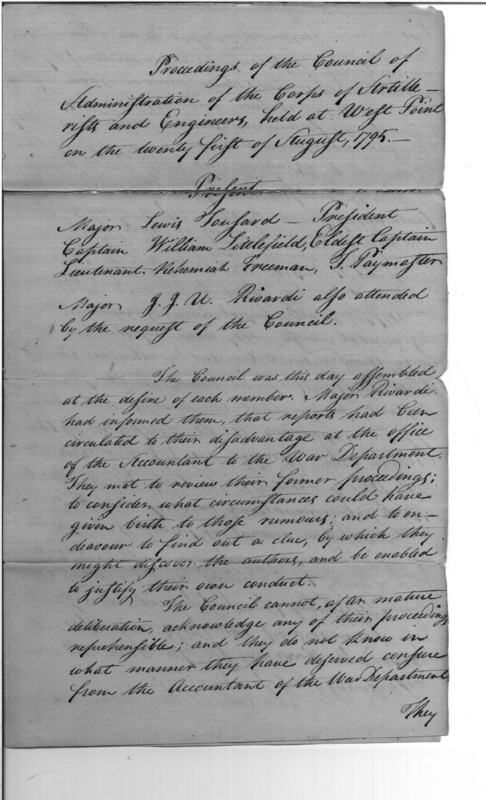 Proceedings of the Council of
Administration of the Corps of Artille-
rists and Engineers, held at West Point
on the twenty first of August, 1795.—
Present
Major Lewis Tousard — President
Captain William Littlefield, Eldest Captain
Lieutenant Nehemiah Freeman, T. Paymaster
Major J. J. U. Rivardi also attended
by the request of the Council.
The Council was this day assembled
at the desire of each member. Major Rivardi
had informed them, that reports had been
circulated to their disadvantage at the office
of the Accountant to the War Department.
They met to review their former proceedings;
to consider what circumstances could have
given birth to those rumours; and to en-
deavour to find out a clue, by which they
might discover the authors, and be enabled
to justify their own conduct.
The Council cannot, after mature
deliberation, acknowledge any of their proceedings
reprehensible; and they do not know in
what manner they have deserved censure
from the Accountant of the War Department
They